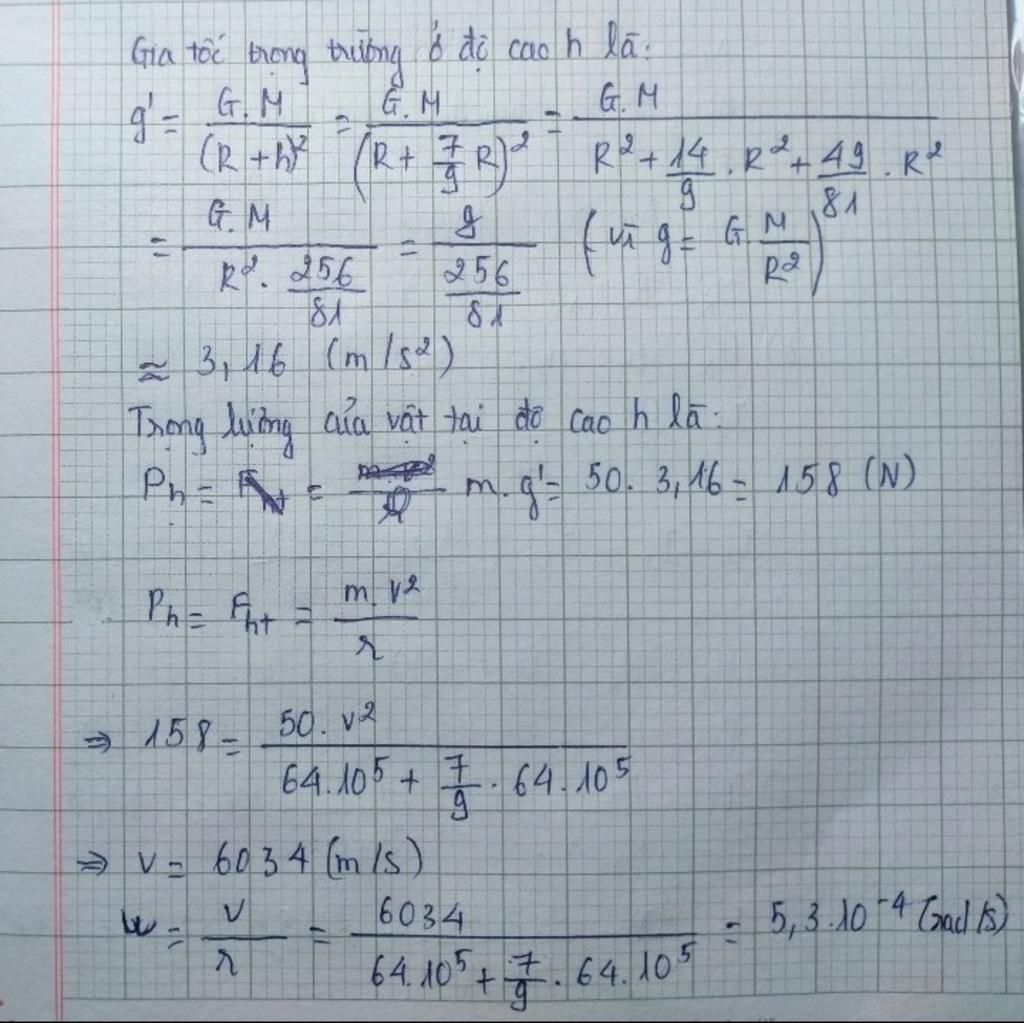 Gia tốc trọng trường ở độ cao h là:
g' = G.M / (R + h)² = G.M / (R + 7/9 R)² = G.M / (R² + 14/9 . R² + 49/81 . R²)
= G.M / (R² . 256/81) = g / (256/81) (vì g = G M/R²)
≈ 3,16 (m/s²)
Trọng lượng của vật tại độ cao h là:
Ph = m. g' = 50. 3,16 = 158 (N)
Ph = Fht = m.v² / r
⇒ 158 = 50. v² / (64.10⁵ + 7/9 . 64.10⁵)
⇒ v = 6034 (m/s)
w = v / r = 6034 / (64.10⁵ + 7/9 . 64.10⁵) = 5,3.10⁻⁴ (rad/s)